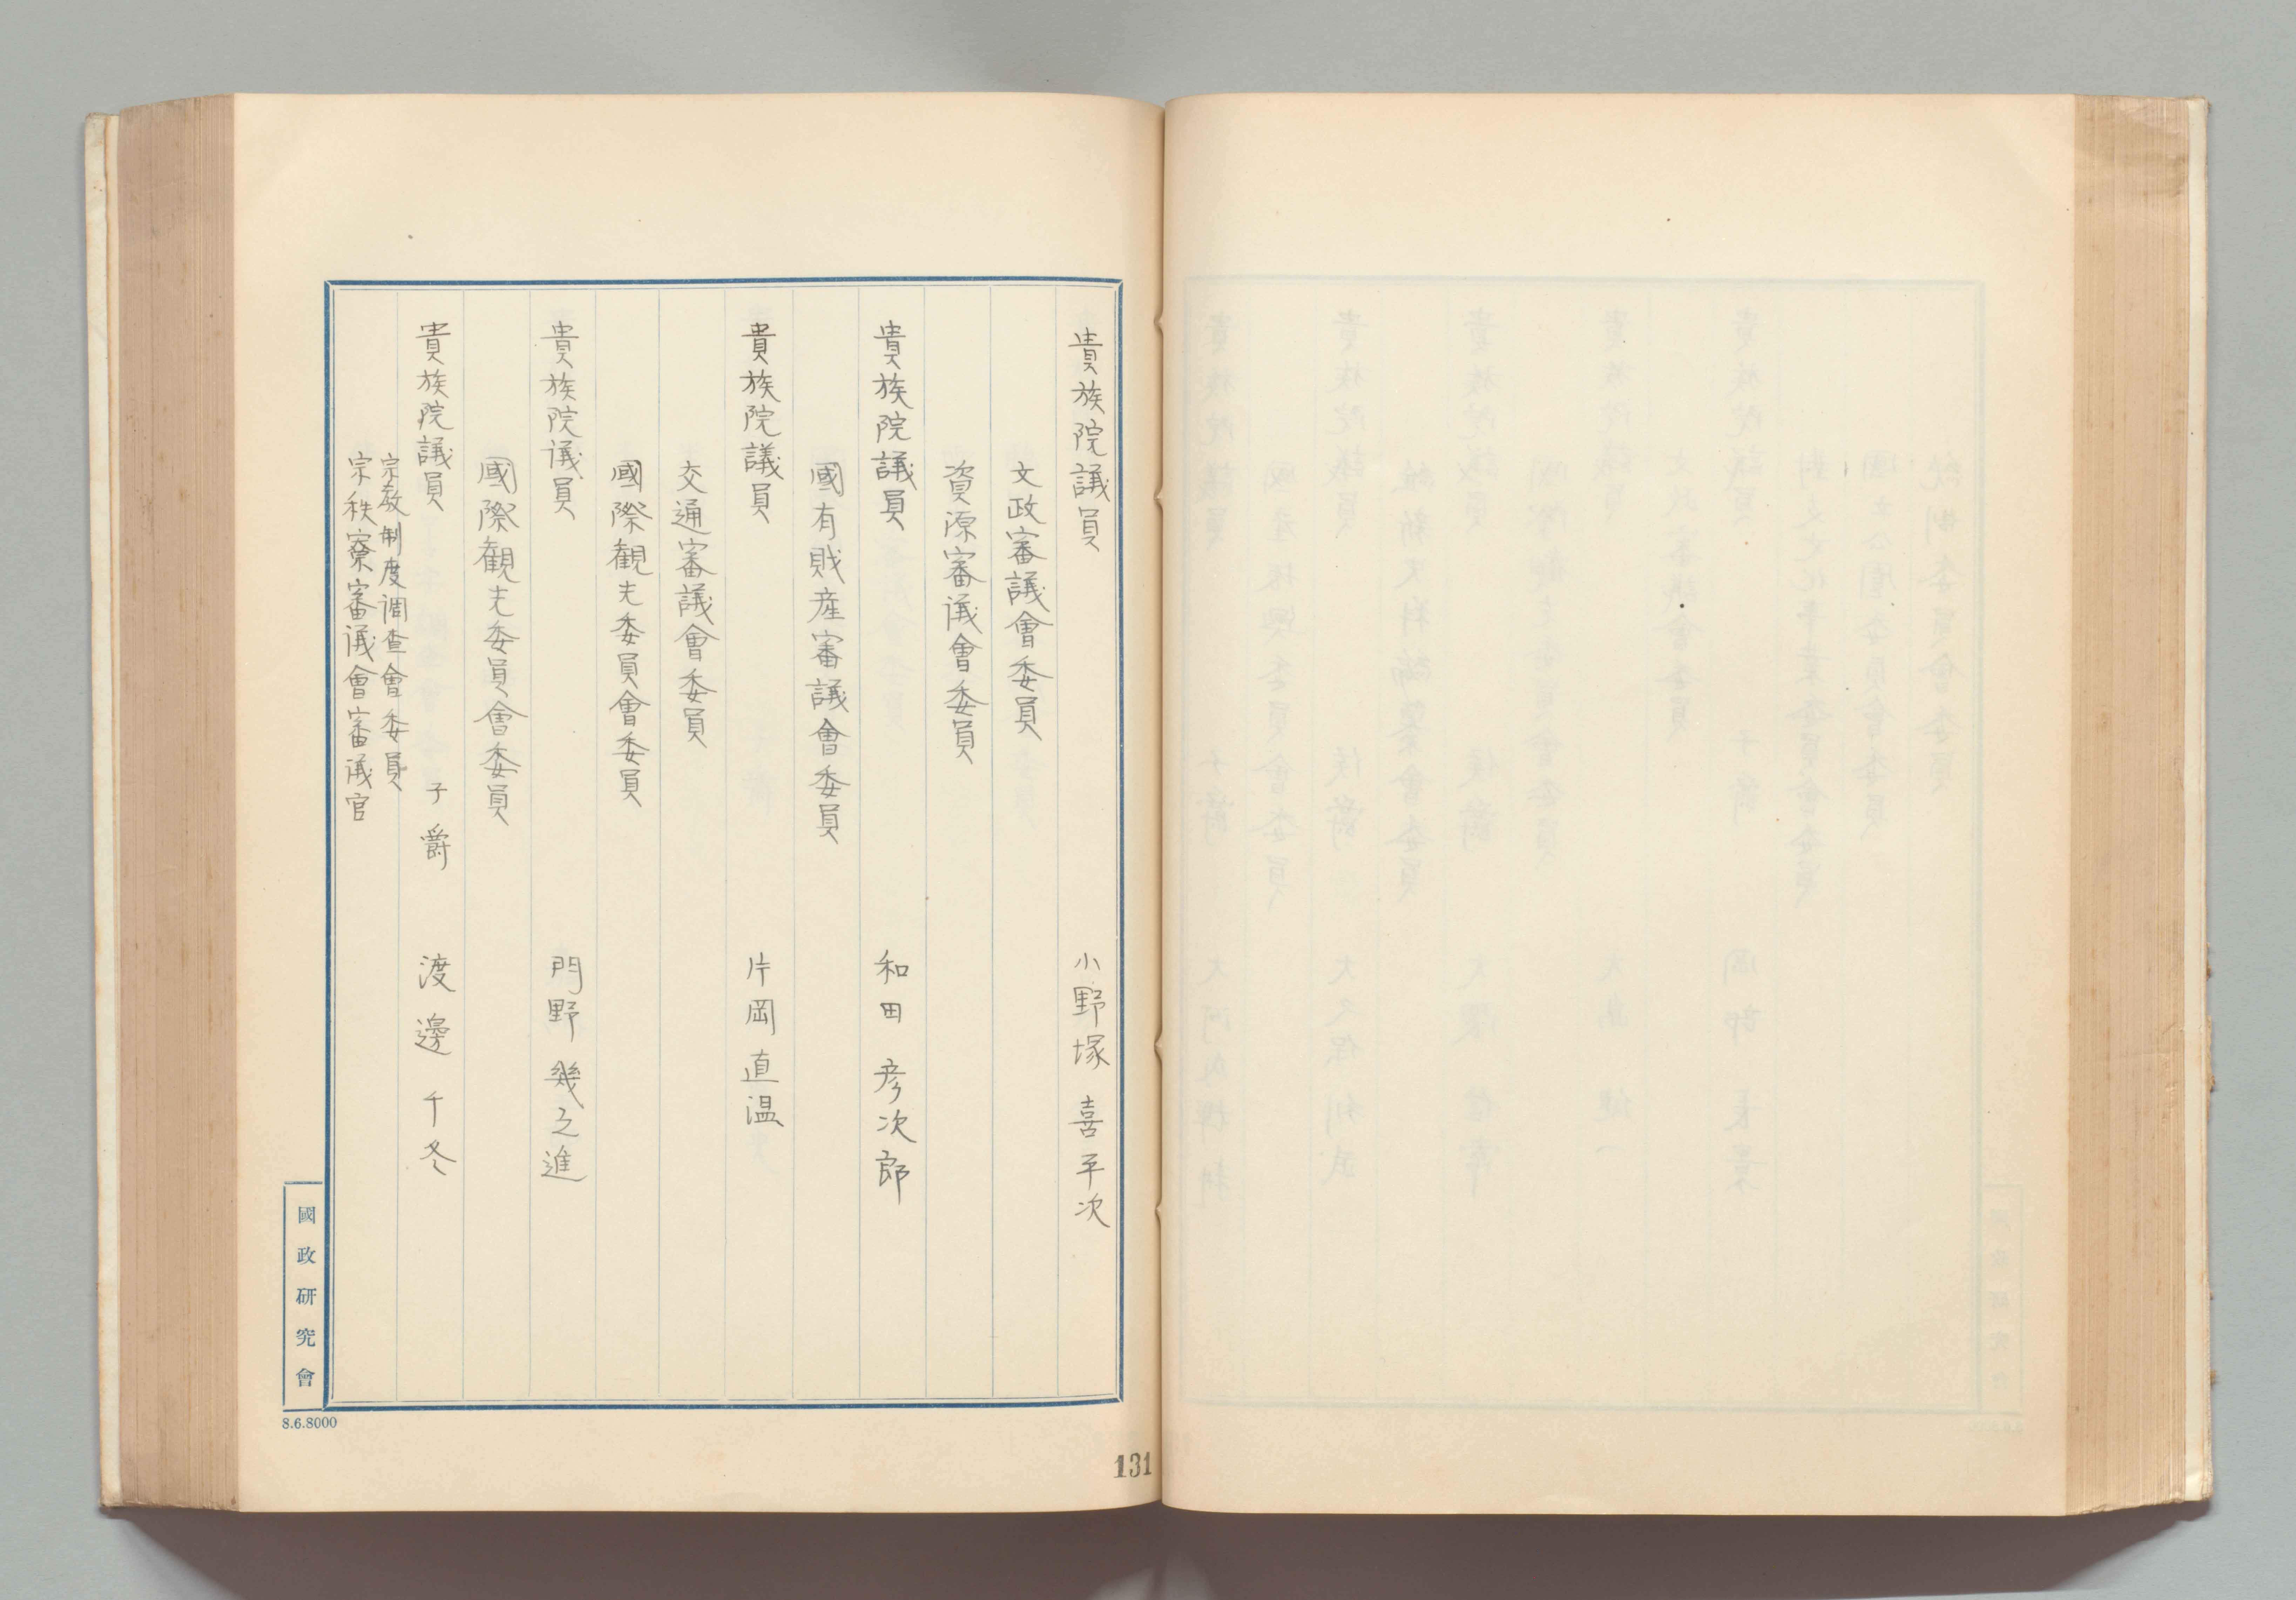 貴族院議員 小野塚 喜平次
文政審議會委員
資源審議會委員
貴族院議員 和田 彦次郎
國有財産審議會委員
貴族院議員 片岡 直温
交通審議會委員
國際観光委員會委員
貴族院議員 門野 幾之進
國際観光委員會委員
貴族院議員 子爵 渡邊 千冬
宗教制度調査會委員
宗秩寮審議會審議官
國政研究會
8.6.8000
131